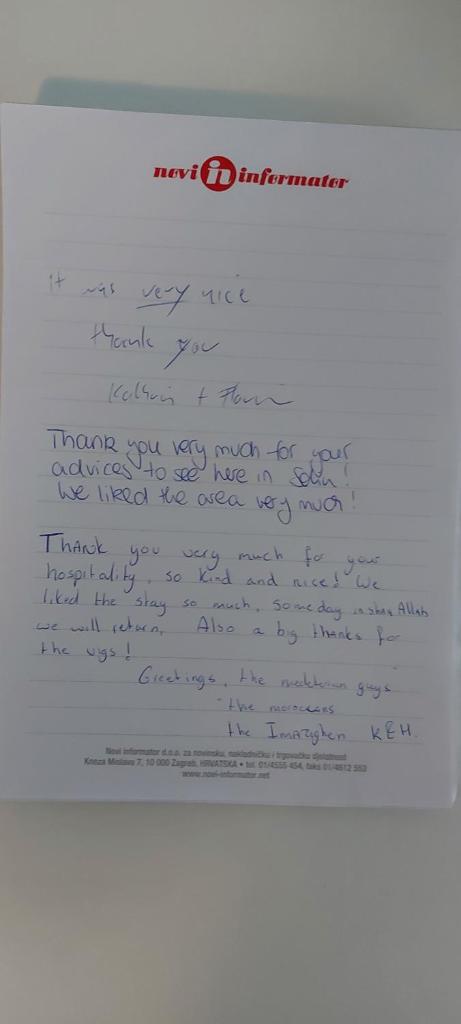 novi in informator
It was very nice
thank you
Kathrin + Florin
Thank you very much for your
advices to see here in Solin!
We liked the area very much!
Thank you very much for your
hospitality, so kind and nice! We
liked the stay so much, someday inshaa Allah
we will return. Also a big thanks for
the vigs!
Greetings, the
guys
the moroccans
the Imazighen K&H.
Novi informator d.o.o. za novinsku, nakladničku i trgovačku djelatnost
Kneza Mislava 7, 10 000 Zagreb, HRVATSKA • tel. 01/4555 454, faks 01/4612 553
www.novi-informator.net